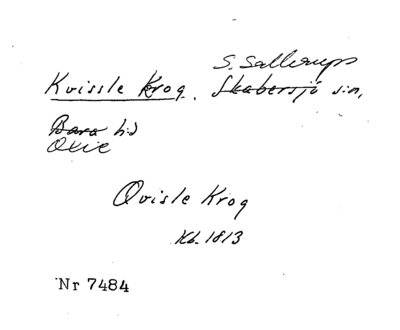 S. Sallerups
Kvissle Krog. Skabersjö sn,
Bara hd
Oxie
Qvisle Krog
Kb. 1813
Nr 7484